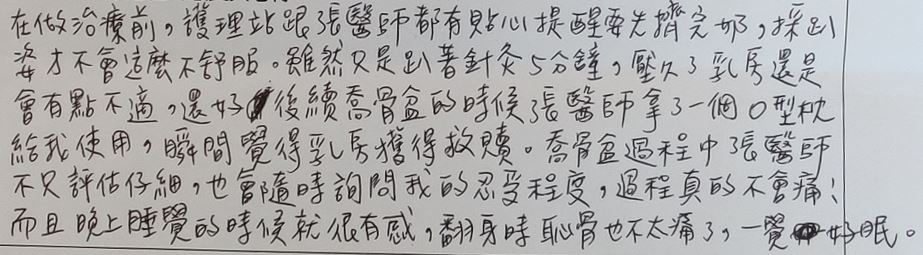 在做治療前，護理站跟張醫師都有貼心提醒要先擠完奶，採趴
姿才不會這麼不舒服。雖然只是趴著針灸5分鐘，壓久了乳房還是
會有點不適，還好後續喬骨盆的時候張醫師拿了一個O型枕
給我使用，瞬間覺得乳房獲得救贖。喬骨盆過程中張醫師
不只評估仔細，也會隨時詢問我的忍受程度，過程真的不會痛！
而且晚上睡覺的時候就很有感，翻身時恥骨也不太痛了，一覺好眠。